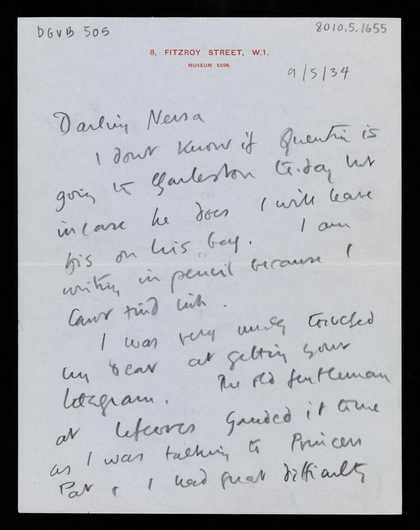 DGVB 505
8010.5.1655
8, FITZROY STREET, W.1.
MUSEUM
9/5/34
Darling Nessa
I dont know if Quentin is
going to Charleston to-day but
in case he does I will leave
this on his bag. I am
writing in pencil because I
cant find ink.
I was very much touched
my Dear at getting your
telegram. The old gentleman
at Lefevres handed it to me
as I was talking to Princess
Pat & I had great difficulty